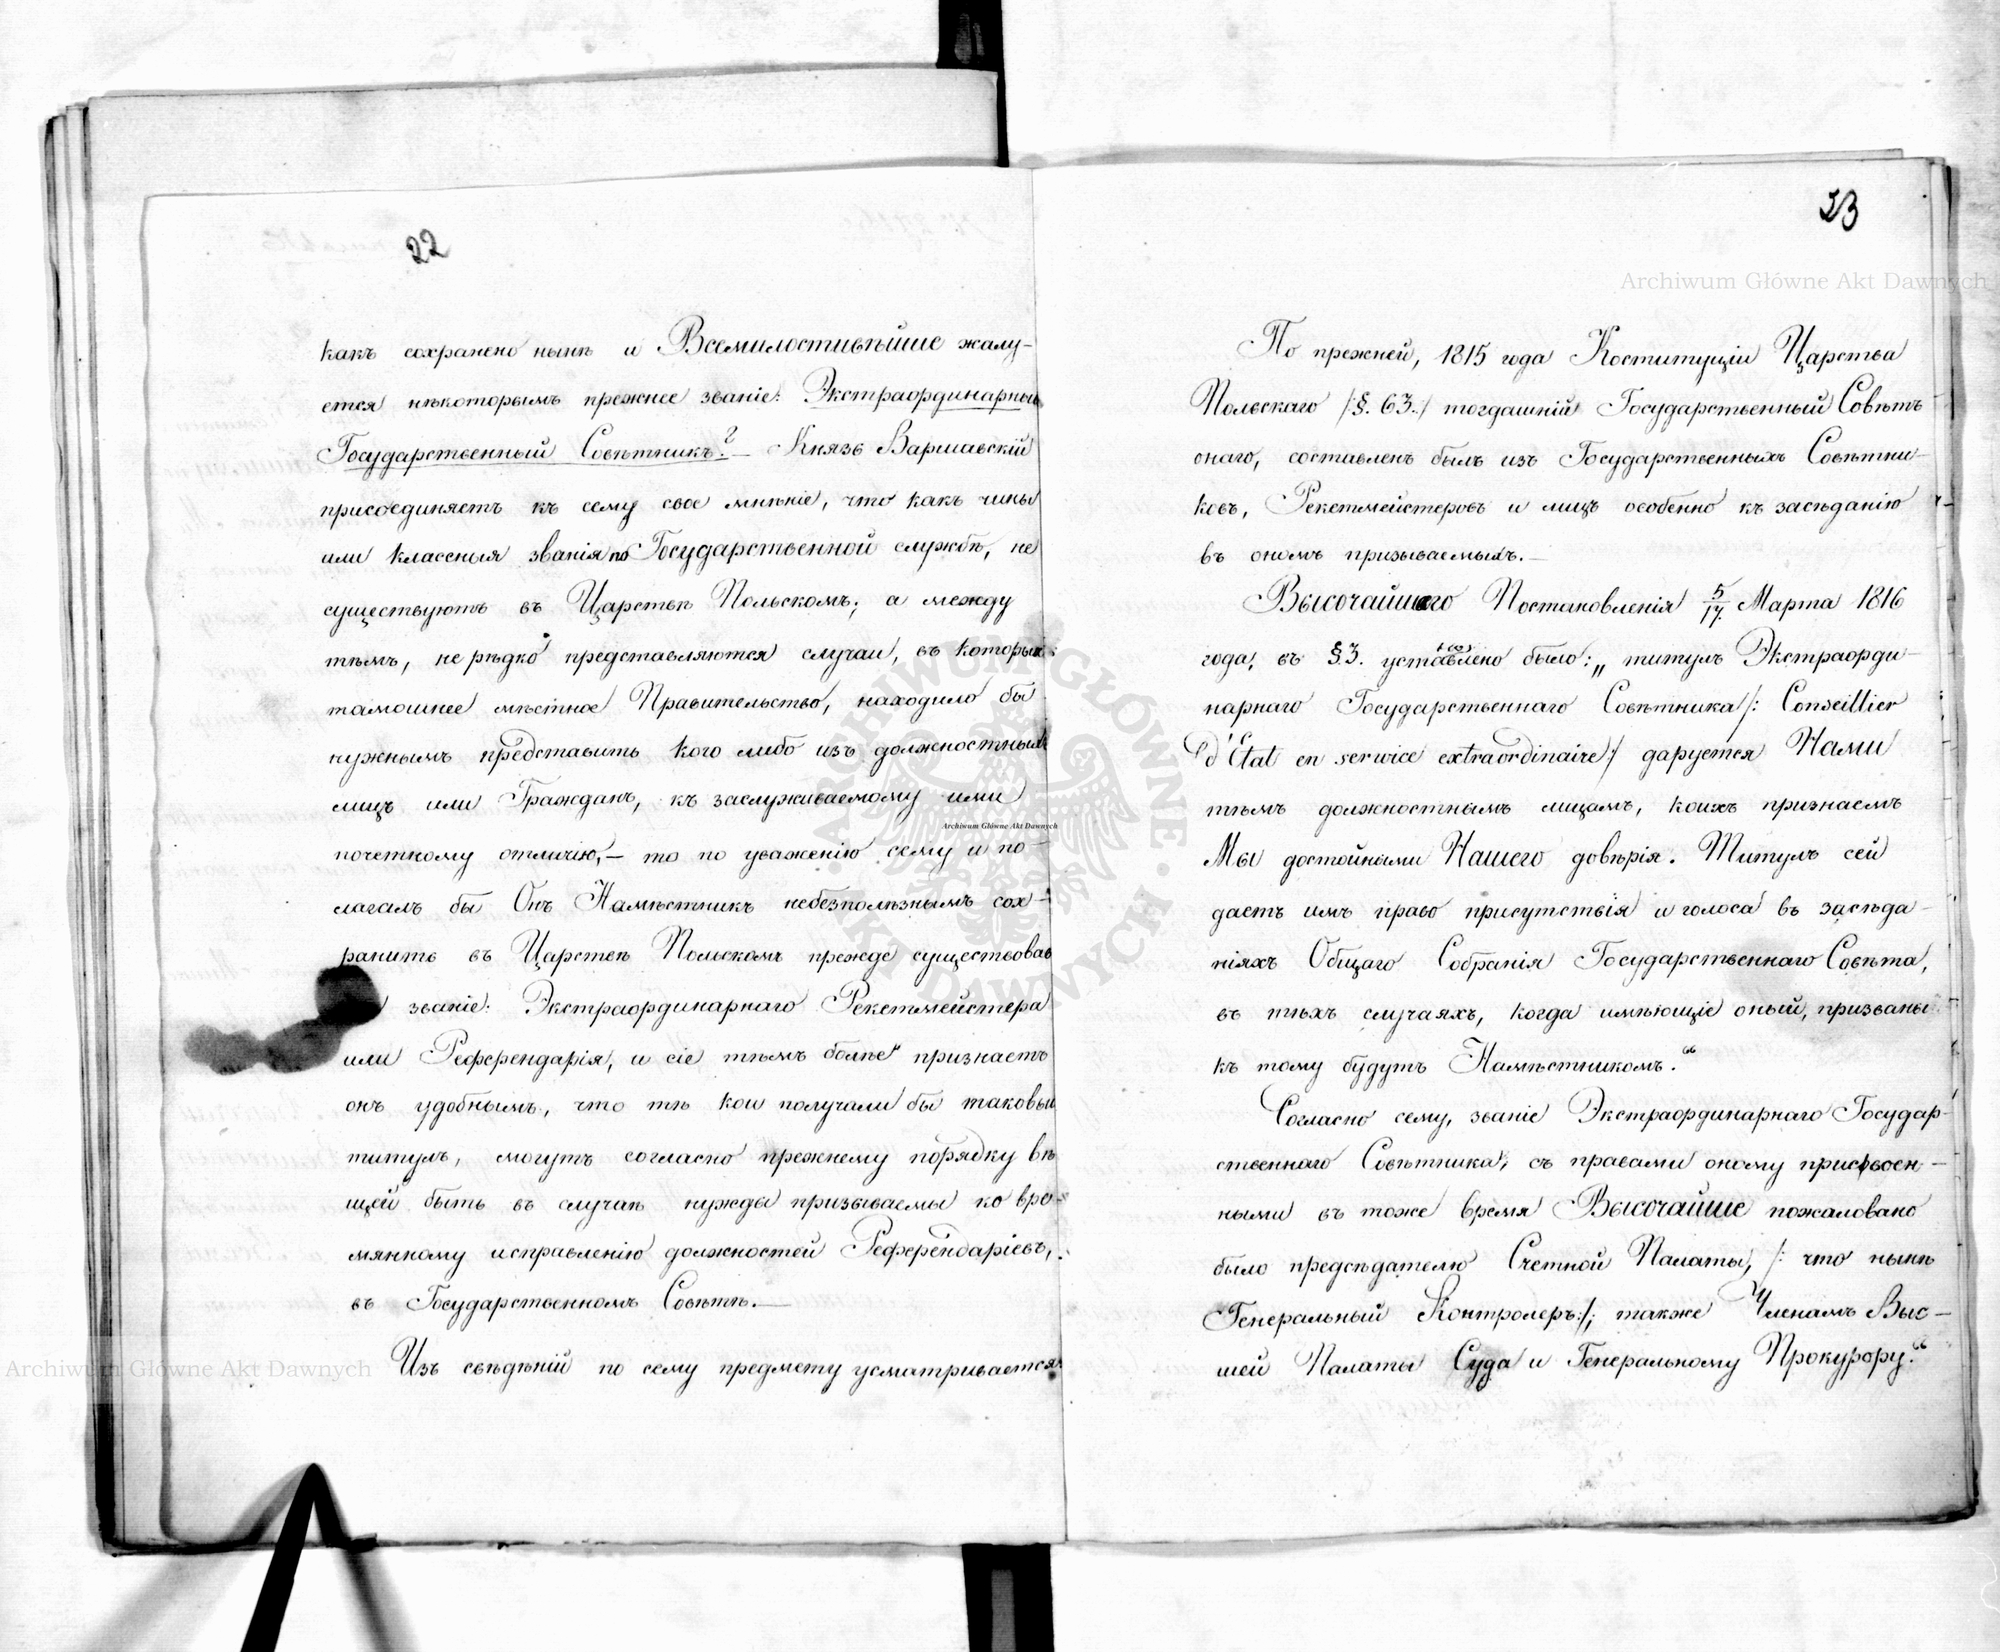 22
какъ сохранено нынѣ и Всемилостивѣйше жалу-
ется нѣкоторымъ прежнее званіе: Экстраординарный
Государственный Совѣтникъ? — Князь Варшавскій
присоединяетъ къ сему свое мнѣніе, что какъ чины
или классныя званія по Государственной службѣ, не
существуютъ въ Царствѣ Польскомъ; а между
тѣмъ, не рѣдко представляются случаи, въ которыхъ
тамошнее мѣстное Правительство, находило бы
нужнымъ представить кого либо изъ должностныхъ
лицъ или Гражданъ, къ заслуживаемому ими
почетному отличію, — то по уваженію сему и по-
лагалъ бы Онъ Намѣстникъ небезполѣзнымъ сох-
ранить въ Царствѣ Польскомъ прежде существовав
званіе: Экстраординарнаго Рекетмейстера
или Референдарія, и сіе тѣмъ болѣе признаетъ
онъ удобнымъ, что тѣ кои получали бы таковый
титулъ, могутъ согласно прежнему порядку вѣ
щей быть въ случаѣ нужды призываемы ко вре-
мянному исправленію должностей Референдаріевъ,
въ Государственномъ Совѣтѣ. —
Изъ свѣдѣній по сему предмету усматривается:
23
По прежней, 1815 года Коституціи Царства
Польскаго /:§. 63.:/ тогдашній Государственный Совѣтъ
онаго, составленъ былъ изъ Государственныхъ Совѣтни-
ковъ, Рекетмейстеровъ и лицъ особенно къ засѣданію
въ ономъ призываемыхъ. —
Высочайшаго Постановленія 5/17. Марта 1816
года, въ §3. уставлено было: „титулъ Экстраорди-
нарнаго Государственнаго Совѣтника /: Conseillier
d'Etat en serwice extraordinaire:/ даруется Нами
тѣмъ должностнымъ лицамъ, коихъ признаемъ
Мы достойными Нашего довѣрія. Титулъ сей
даетъ имъ право присутствія и голоса въ засѣда-
ніяхъ Общаго Собранія Государственнаго Совѣта,
въ тѣхъ случаяхъ, когда имѣющіе оный, призваны
къ тому будутъ Намѣстникомъ.“
Согласно сему, званіе Экстраординарнаго Государ-
ственнаго Совѣтника, съ правами оному присвоен-
ными въ тоже время Высочайше пожаловано
было предсѣдателю Счетной Палаты, /: что нынѣ
Генеральный Контролеръ:/; также Членамъ Выс-
шей Палаты Суда и Генеральному Прокурору.“
Archiwum Główne Akt Dawnych
Archiwum Główne Akt Dawnych
Archiwum Główne Akt Dawnych
ARCHIWUM GŁÓWNE AKT DAWNYCH